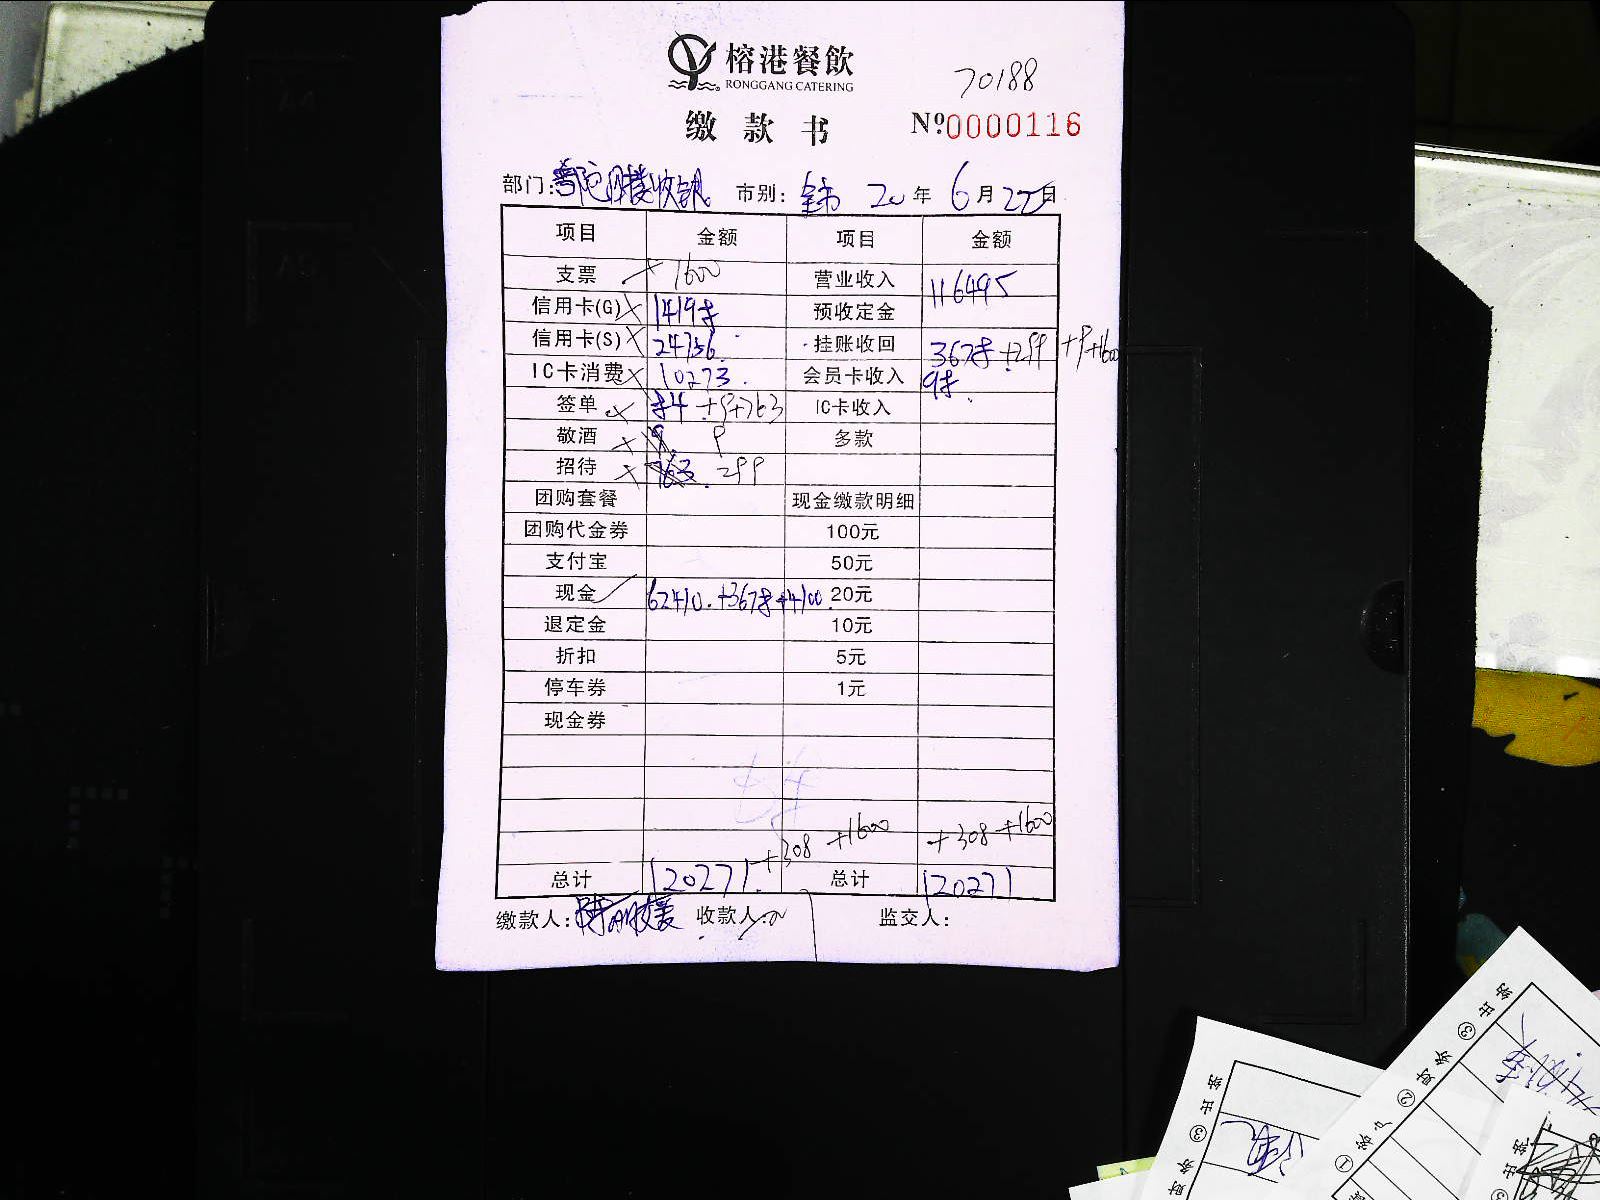 榕港餐飲
RONGGANG CATERING
70188
缴款书 Nº0000116
部门: 市别: 20年6月27日
项目 金额 项目 金额
支票 1600 营业收入 116495
信用卡(G) 14198 预收定金
信用卡(S) 24756 挂账收回 3678+299+9+1600
IC卡消费 10273 会员卡收入 98
签单 84+9+763 IC卡收入
敬酒 9 9 多款
招待 763 299
团购套餐 现金缴款明细
团购代金券 100元
支付宝 50元
现金 62410+3678+4100 20元
退定金 10元
折扣 5元
停车券 1元
现金券
+308 +1600 +308+1600
总计 120271 总计 120271
缴款人: 收款人: 监交人:
③出纳
②财务
①客户
③出纳
财务
出纳